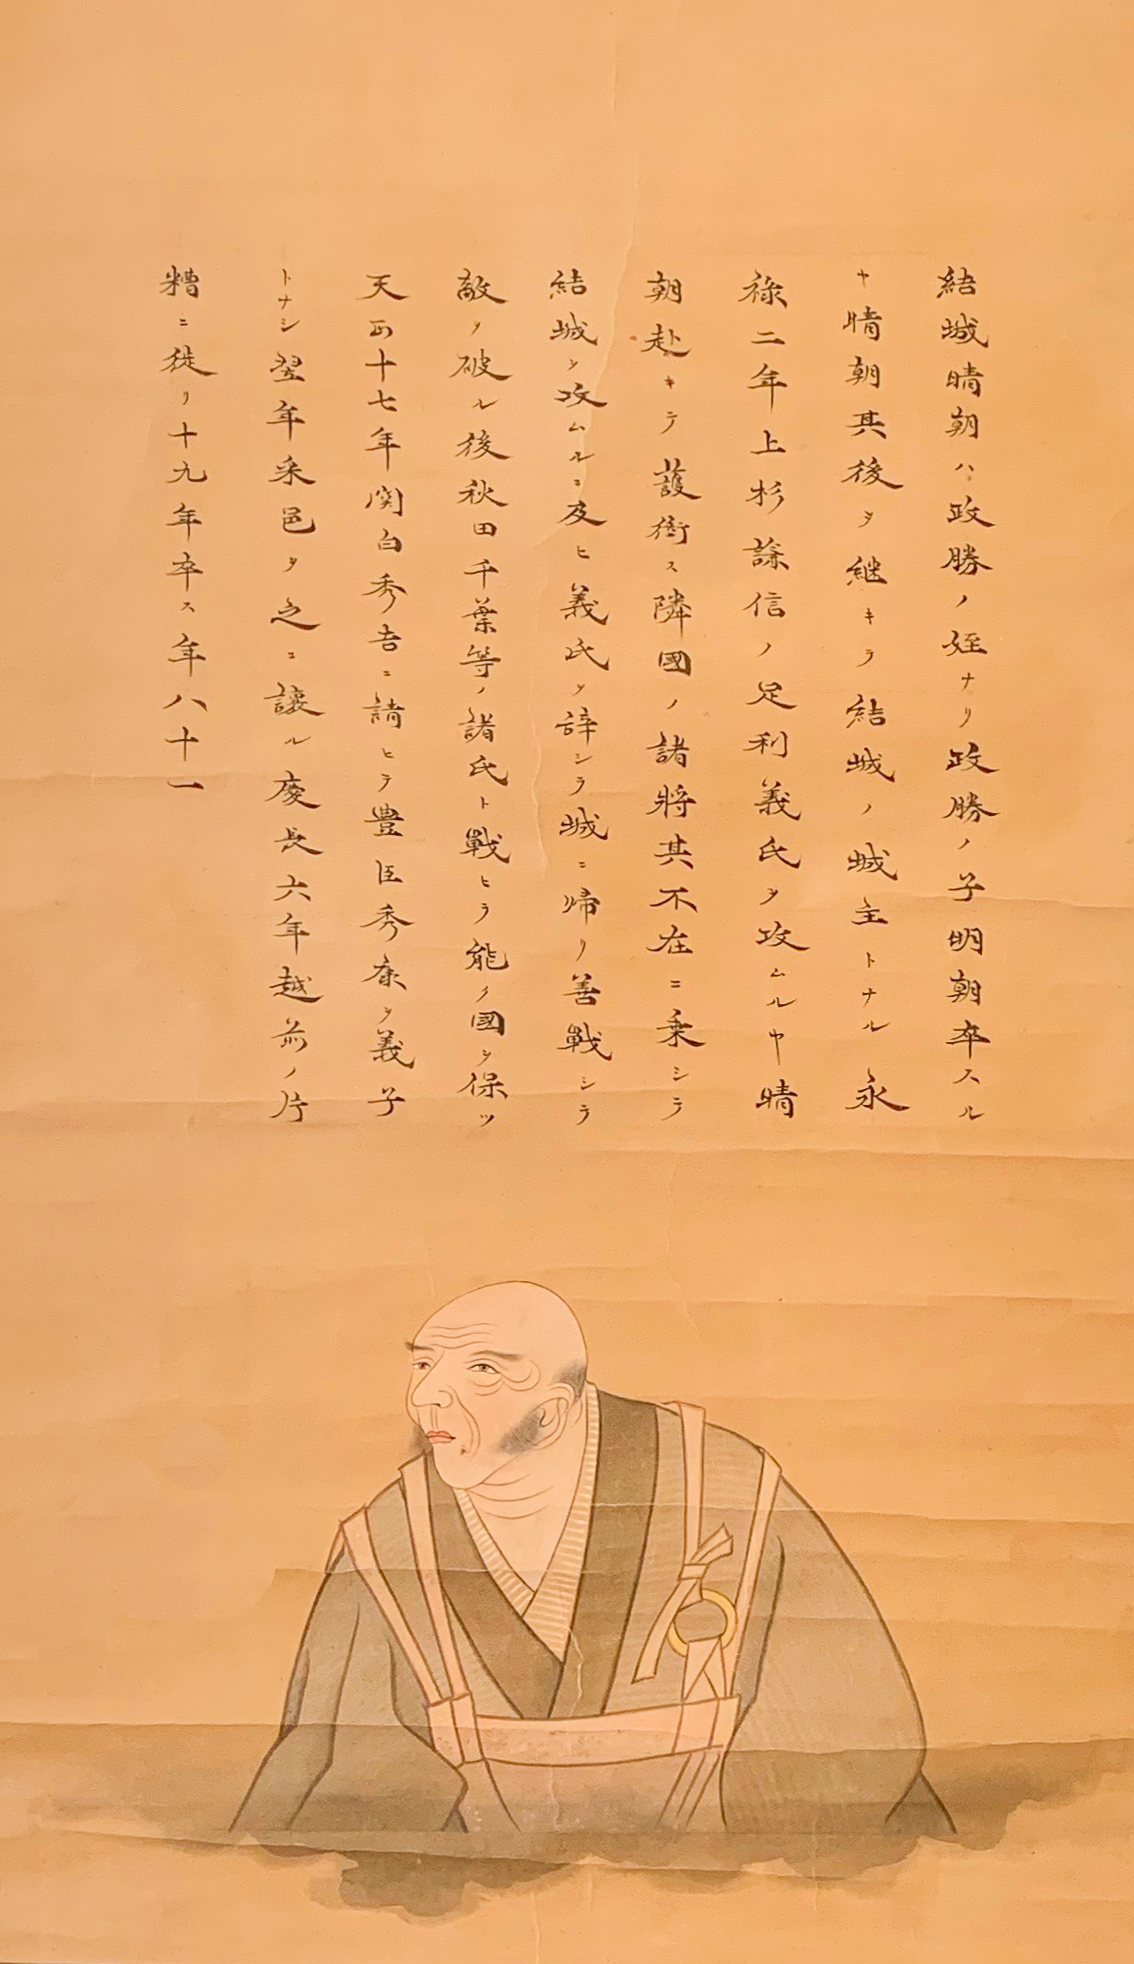 結城晴朝ハ政勝ノ姪ナリ政勝ノ子明朝卒スル
ヤ晴朝其後ヲ継キテ結城ノ城主トナル永
祿二年上杉謙信ノ足利義氏ヲ攻ムルヤ晴
朝赴キテ護衛ス隣國ノ諸將其不在ニ乗シテ
結城ヲ攻ムルニ及ヒ義氏ヲ辞シテ城ニ帰リ善戰シテ
敵ヲ破ル後秋田千葉等ノ諸氏ト戰ヒテ能ク國ヲ保ツ
天正十七年関白秀吉ニ請ヒテ豊臣秀康ヲ義子
トナシ翌年采邑ヲ之ニ譲ル慶長六年越前ノ片
糟ニ徙リ十九年卒ス年八十一